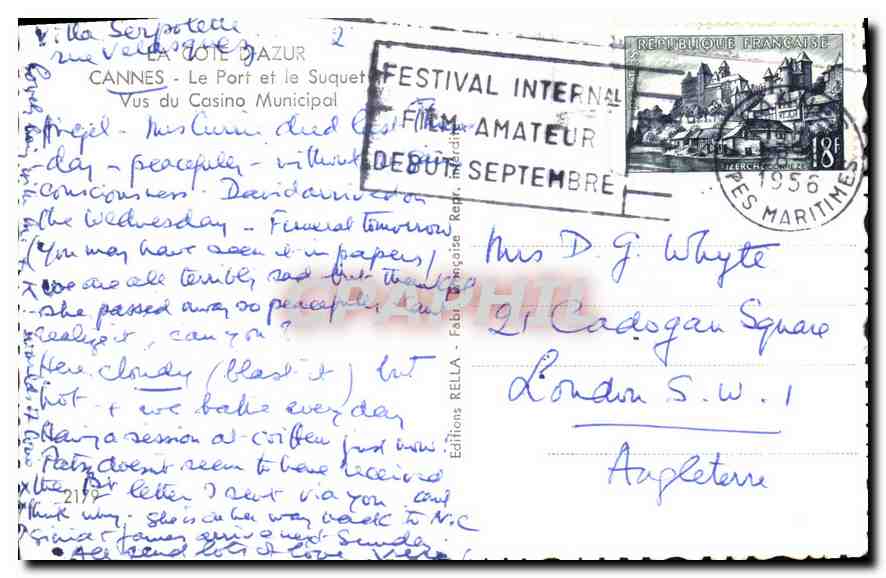 Villa Serpolette
rue Velasquez
2
LA COTE D'AZUR
CANNES - Le Port et le Suquet
Vus du Casino Municipal
FESTIVAL INTERNAL
FILM AMATEUR
DEBUT SEPTEMBRE
REPUBLIQUE FRANÇAISE
18F
1956
PES MARITIMES
Angel - Mrs Currie died last Thurs
day - peacefully - without
consciousness - David arrived on
the Wednesday - Funeral tomorrow
(you may have seen it in papers)
we are all terribly sad but thankful
she passed away so peacefully
realize it, can you?
Here cloudy (blast it) but
hot + we bake every day
Having a session at coiffeur just now!
Patsy doesn't seem to have received
the letter I sent via you and
think why - she is on her way back to N.C
arrive next Sunday
All send lots of love
2179
Editions RELLA - Fabr. Française Repr. interdite
Mrs D. G. Whyte
21 Cadogan Square
London S.W.1
Angleterre
CPAPHIL